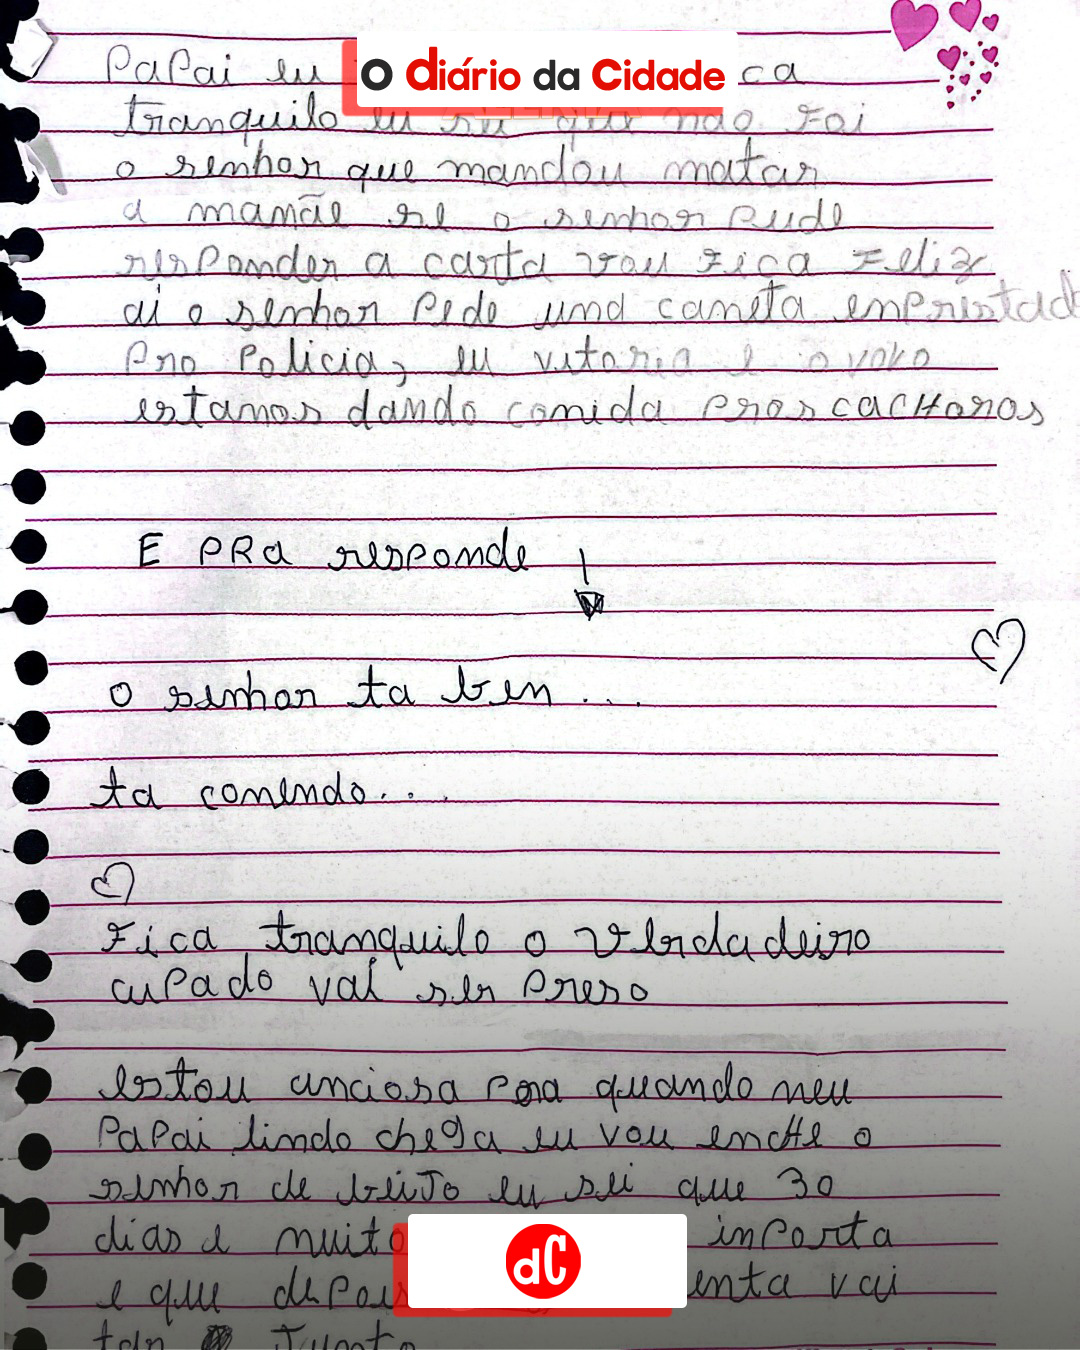 PaPai eu
O diário da Cidade
ca
tranquilo eu sei que não Foi
o senhor que mandou matar
a mamãe se o senhor Pude
resPonder a carta vou Fica Feliz
ai o senhor Pede uma caneta emPrestad
Pro Policia, eu vitoria e o vovo
estamos dando comida Pros cacHoros
E PRa resPonde
o senhor ta bem...
ta comendo...
Fica tranquilo o verdadeiro
cuPado vai ser Preso
estou anciosa Pora quando meu
PaPai lindo chega eu vou encHe o
senhor de beiJo eu sei que 30
dias e muito
imPorta
dC
e que dePois
enta vai
tar Junto